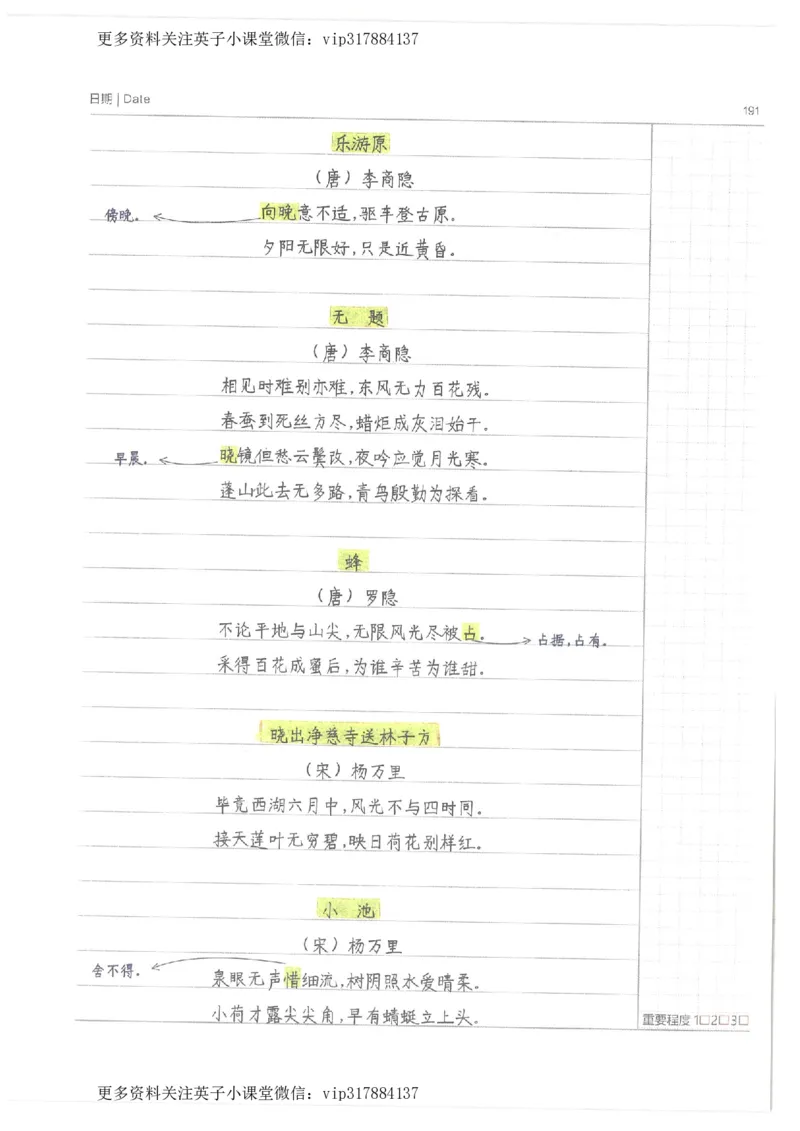 更多资料关注英子小课堂微信：vip317884137
日期 | Date
191
乐游原
（唐）李商隐
傍晚。
向晚意不适，驱车登古原。
夕阳无限好，只是近黄昏。
无 题
（唐）李商隐
相见时难别亦难，东风无力百花残。
春蚕到死丝方尽，蜡炬成灰泪始干。
早晨。
晓镜但愁云鬓改，夜吟应觉月光寒。
蓬山此去无多路，青鸟殷勤为探看。
蜂
（唐）罗隐
不论平地与山尖，无限风光尽被占。
占据，占有。
采得百花成蜜后，为谁辛苦为谁甜。
晓出净慈寺送林子方
（宋）杨万里
毕竟西湖六月中，风光不与四时同。
接天莲叶无穷碧，映日荷花别样红。
小 池
（宋）杨万里
舍不得。
泉眼无声惜细流，树阴照水爱晴柔。
小荷才露尖尖角，早有蜻蜓立上头。
重要程度 1□2□3□
更多资料关注英子小课堂微信：vip317884137